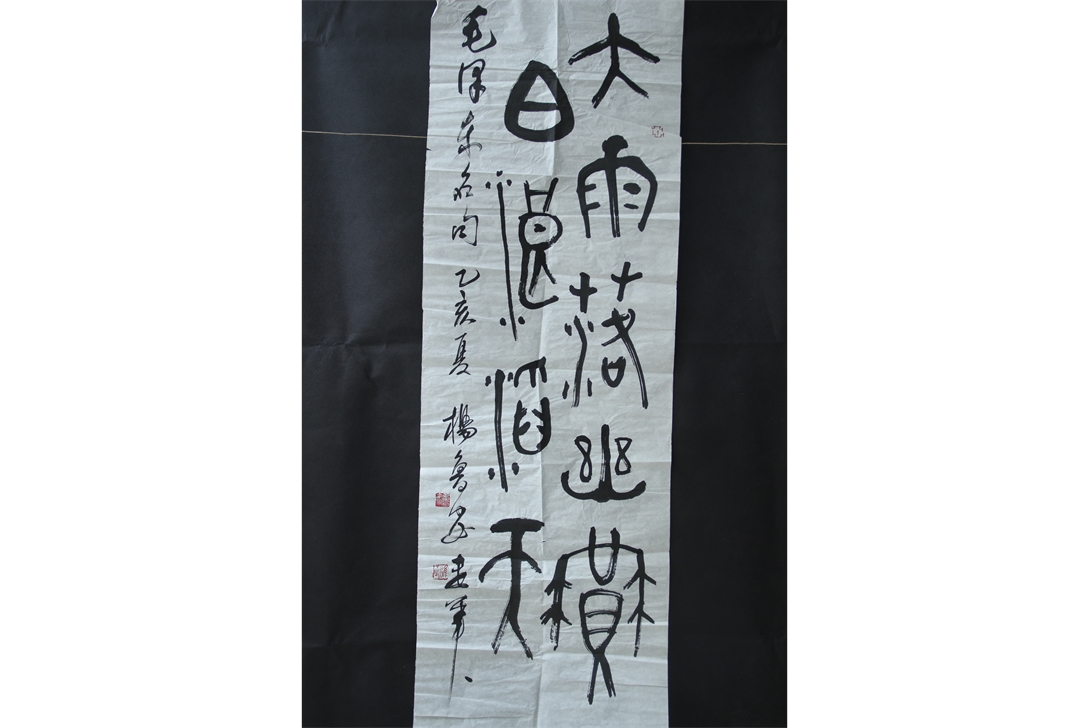 大雨落幽燕
白浪滔天
毛泽东名句 乙亥夏 楊魯安 走筆